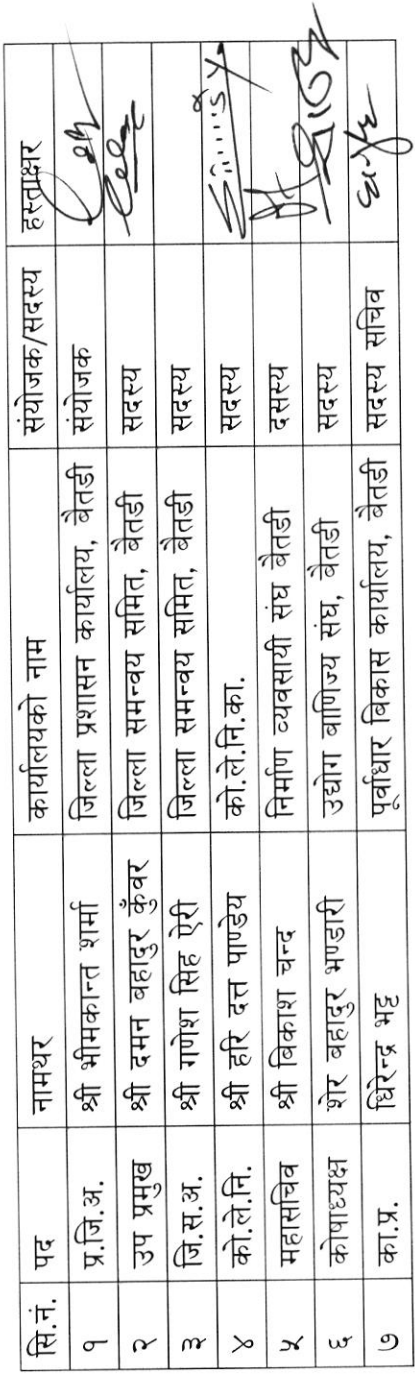 सि.नं. पद नामथर कार्यालयको नाम संयोजक/सदस्य हस्ताक्षर
१ प्र.जि.अ. श्री भीमकान्त शर्मा जिल्ला प्रशासन कार्यालय, बैतडी संयोजक
२ उप प्रमुख श्री दमन बहादुर कुँवर जिल्ला समन्वय समित, बैतडी सदस्य
३ जि.स.अ. श्री गणेश सिह ऐरी जिल्ला समन्वय समित, बैतडी सदस्य
४ को.ले.नि. श्री हरि दत्त पाण्डेय को.ले.नि.का. सदस्य
५ महासचिव श्री बिकाश चन्द निर्माण व्यवसायी संघ बैतडी दसस्य
६ कोषाध्यक्ष शेर बहादुर भण्डारी उद्योग बाणिज्य संघ, बैतडी सदस्य
७ का.प्र. धिरेन्द्र भट्ट पूर्वाधार बिकास कार्यालय, बैतडी सदस्य सचिव